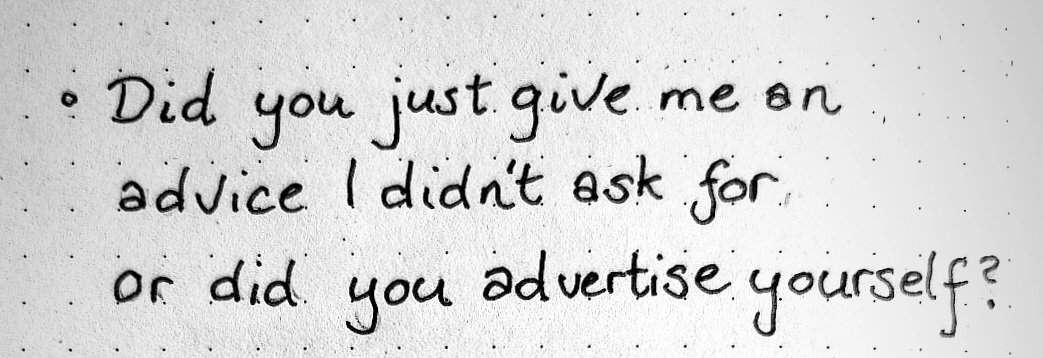 • Did you just give me an
advice I didn't ask for
or did you advertise yourself?